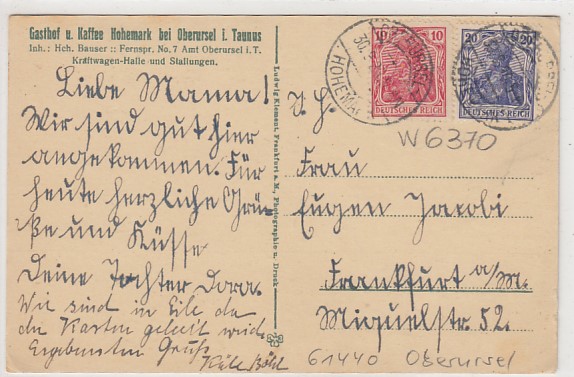 Gasthof u. Kaffee Hohemark bei Oberursel i. Taunus
Inh.: Hch. Bauser :: Fernspr. No. 7 Amt Oberursel i. T.
Kraftwagen-Halle und Stallungen.
Liebe Mama!
Wir sind gut hier
angekommen. Für
heute herzliche Grü-
ße und Küsse
Deine Tochter Dora.
Wir sind in Eile da
die Karten geholt werd.
Ergebensten Gruß
Ludwig Klement, Frankfurt a. M., Photographie u. Druck
10 10
DEUTSCHES REICH
20 20
DEUTSCHES REICH
W6370
Frau
Eugen Jacobi
Frankfurt a/M.
Miquelstr. 52.
61440 Oberursel